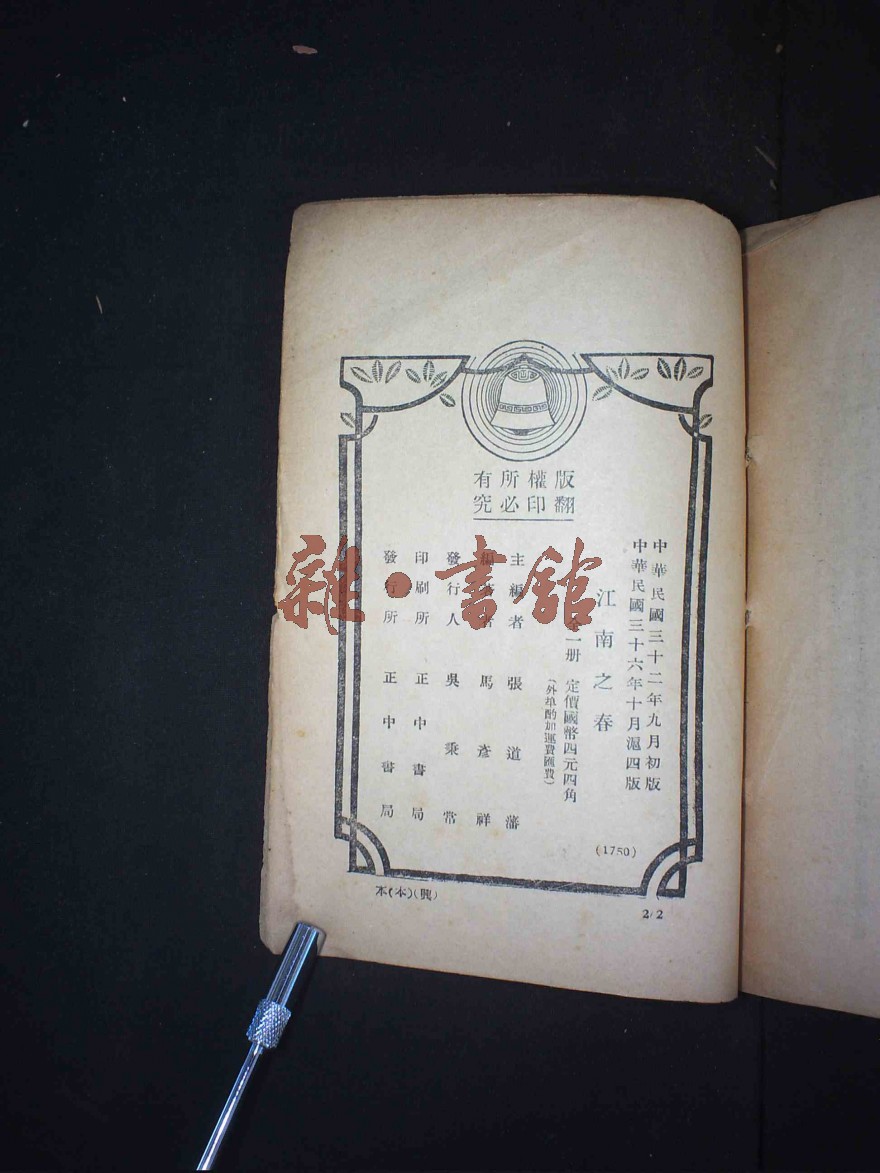 版權所有
翻印必究
中華民國三十二年九月初版
中華民國三十六年十月滬四版
江南之春
全一册 定價國幣四元四角
(外埠酌加運費匯費)
主編者 張道藩
馬彥祥
發行人 吳秉常
印刷所 正中書局
發行所 正中書局
(1750)
(興)(本)本
2/2
雜·書館